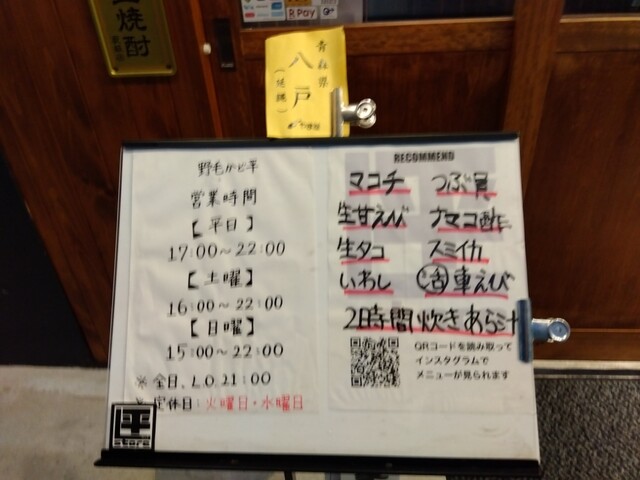 焼酎
R Pay
青森県
八戸
(延縄)
野毛かど平
営業時間
【平日】
17:00〜22:00
【土曜】
16:00〜22:00
【日曜】
15:00〜22:00
※全日、L.O.21:00
※定休日:火曜日・水曜日
平
store
RECOMMEND
マコチ つぶ貝
生甘えび ナマコ酢
生タコ スミイカ
いわし 活車えび
2時間炊きあら汁
QRコードを読み取って
インスタグラムで
メニューが見られます